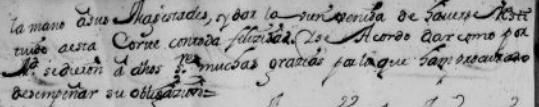 la mano a sus Magestades, y dar la en orenbuena de haverse Resti
tuido a esta Corte con toda felizidad. Se Acordo dar como por
Md. se dieron a dhos ss.res muchas grazias por lo que han procurado
desempeñar su obligazion=